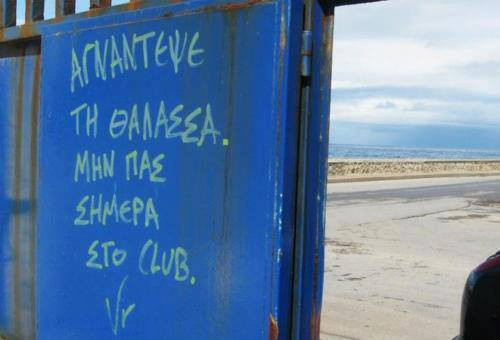 ΑΓΝΑΝΤΕΨΕ
ΤΗ ΘΑΛΑΣΣΑ.
ΜΗΝ ΠΑΣ
ΣΗΜΕΡΑ
ΣΤΟ CLUB.
Vr